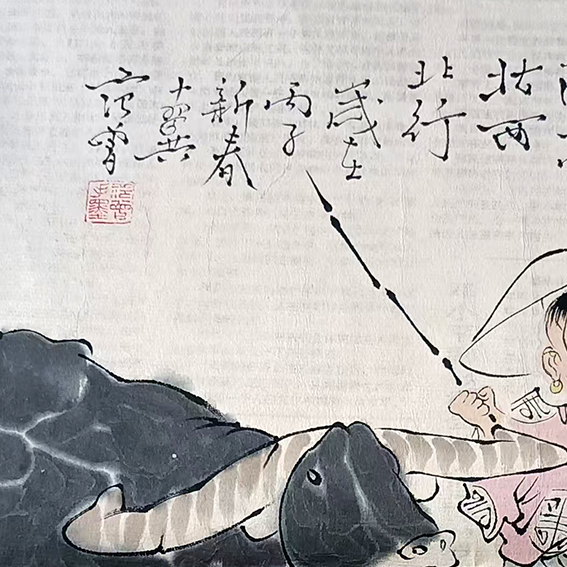 西
北行
歲在
丙子
新春
十翼
范曾